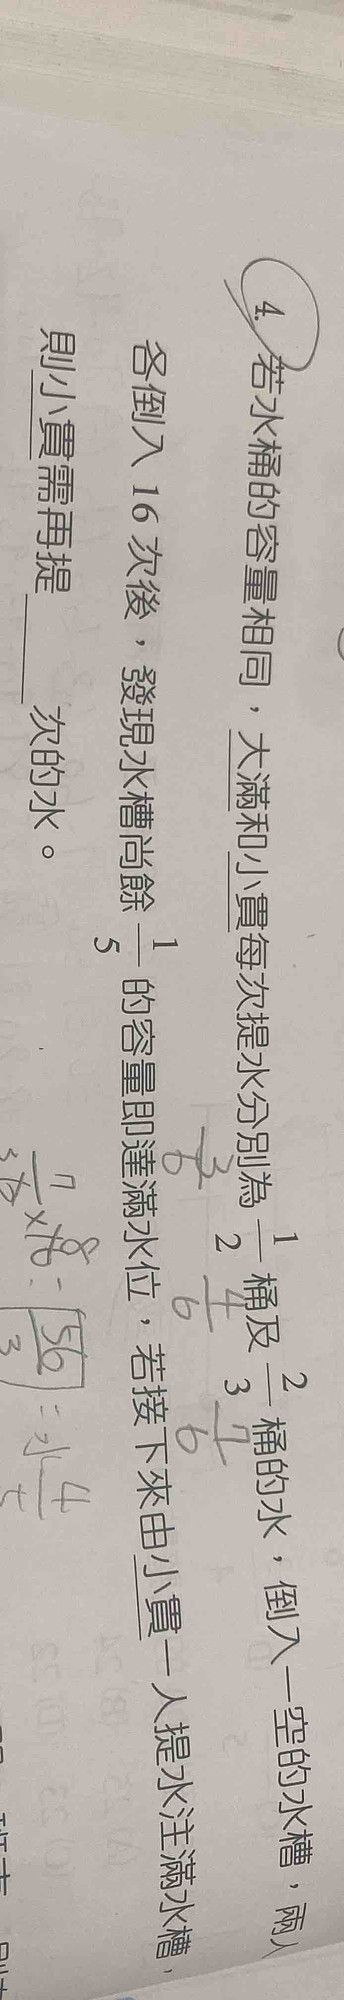 4. 若水桶的容量相同，大滿和小貫每次提水分別為 1/2 桶及 2/3 桶的水，倒入一空的水槽，兩人
3/6 4/6 7/6
各倒入 16 次後，發現水槽尚餘 1/5 的容量即達滿水位，若接下來由小貫一人提水注滿水槽，
則小貫需再提 ＿＿＿ 次的水。
7/6 × 16 = 56/3 = 水 4/5